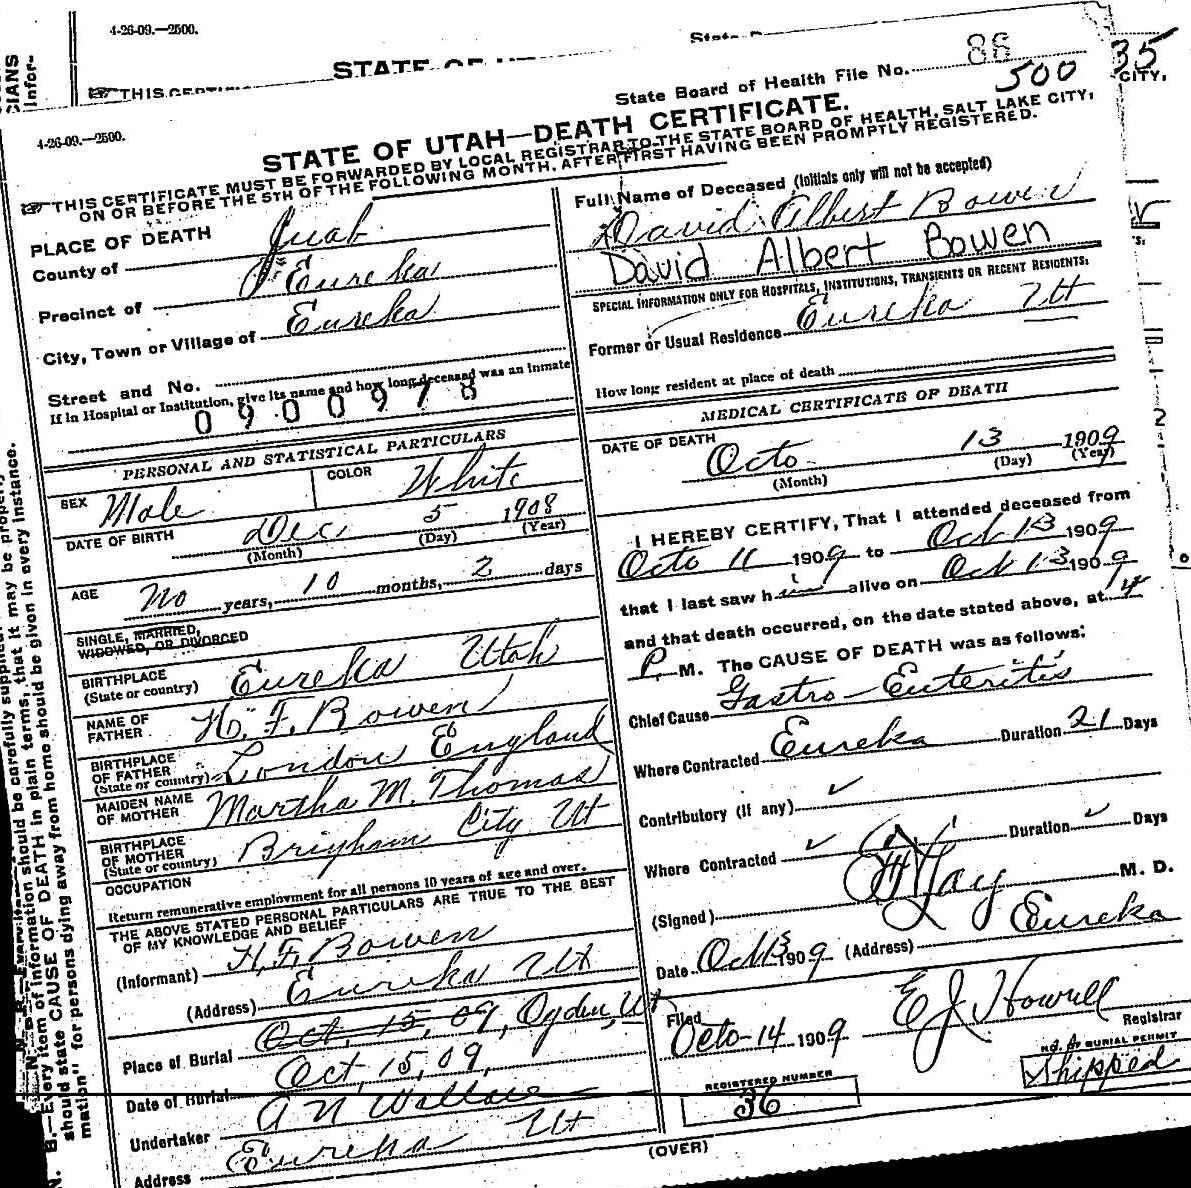 4-26-09.—2500.
STATE OF UT
THIS CERTIF
35
CITY,
State Board of Health File No. 86
500
4-26-09.—2500.
STATE OF UTAH—DEATH CERTIFICATE.
THIS CERTIFICATE MUST BE FORWARDED BY LOCAL REGISTRAR TO THE STATE BOARD OF HEALTH, SALT LAKE CITY,
ON OR BEFORE THE 5TH OF THE FOLLOWING MONTH, AFTER FIRST HAVING BEEN PROMPTLY REGISTERED.
PLACE OF DEATH
County of Juab
Precinct of Eureka
City, Town or Village of Eureka
Street and No.
If in Hospital or Institution, give its name and how long deceased was an inmate
0900978
PERSONAL AND STATISTICAL PARTICULARS
SEX Male COLOR White
DATE OF BIRTH Dec 5 1908
(Month) (Day) (Year)
AGE No years, 10 months, 2 days
SINGLE, MARRIED,
WIDOWED, OR DIVORCED
BIRTHPLACE
(State or country) Eureka Utah
NAME OF
FATHER H. F. Bowen
BIRTHPLACE
OF FATHER
(State or country) London England
MAIDEN NAME
OF MOTHER Martha M. Thomas
BIRTHPLACE
OF MOTHER
(State or country) Brigham City Ut
OCCUPATION
Return remunerative employment for all persons 10 years of age and over.
THE ABOVE STATED PERSONAL PARTICULARS ARE TRUE TO THE BEST
OF MY KNOWLEDGE AND BELIEF
(Informant) H. F. Bowen
(Address) Eureka Ut
Place of Burial Oct. 15, 09, Ogden, Ut
Date of Burial Oct, 15, 09,
Undertaker A N Wallace
Address Eureka Ut
Full Name of Deceased (Initials only will not be accepted)
David Albert Bowen
David Albert Bowen
SPECIAL INFORMATION ONLY FOR HOSPITALS, INSTITUTIONS, TRANSIENTS OR RECENT RESIDENTS:
Former or Usual Residence Eureka Ut
How long resident at place of death
MEDICAL CERTIFICATE OF DEATH
DATE OF DEATH Octo 13 1909
(Month) (Day) (Year)
I HEREBY CERTIFY, That I attended deceased from
Octo 11 1909 to Oct 13 1909
that I last saw him alive on Oct 13 1909
and that death occurred, on the date stated above, at 14
P. M. The CAUSE OF DEATH was as follows:
Chief Cause Gastro-Enteritis
Where Contracted Eureka Duration 21 Days
Contributory (if any) ✓
Where Contracted ✓ Duration ✓ Days
(Signed) M. D.
Date Oct 13 1909 (Address) Eureka
Filed
Octo-14 1909 E J Howell
Registrar
REGISTERED NUMBER
36
No. OF BURIAL PERMIT
Shipped
(OVER)
N. B.—Every item of information should be carefully supplied.
should state CAUSE OF DEATH in plain terms, that it may be properly
mation" for persons dying away from home should be given in every instance.